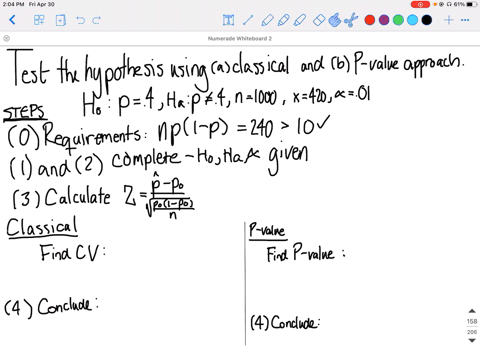 2:04 PM Fri Apr 30
61%
Numerade Whiteboard 2
Test the hypothesis using (a) classical and (b) P-value approach.
H₀: p = .4, Ha: p ≠ .4, n = 1000, x = 420, α = .01
STEPS
(0) Requirements: np(1-p) = 240 > 10 ✓
(1) and (2) complete - H₀, Ha, α given
(3) Calculate Z = (p̂ - p₀) / √(p₀(1-p₀)/n)
Classical
Find CV:
(4) Conclude:
P-value
Find P-value:
(4) Conclude:
158
206